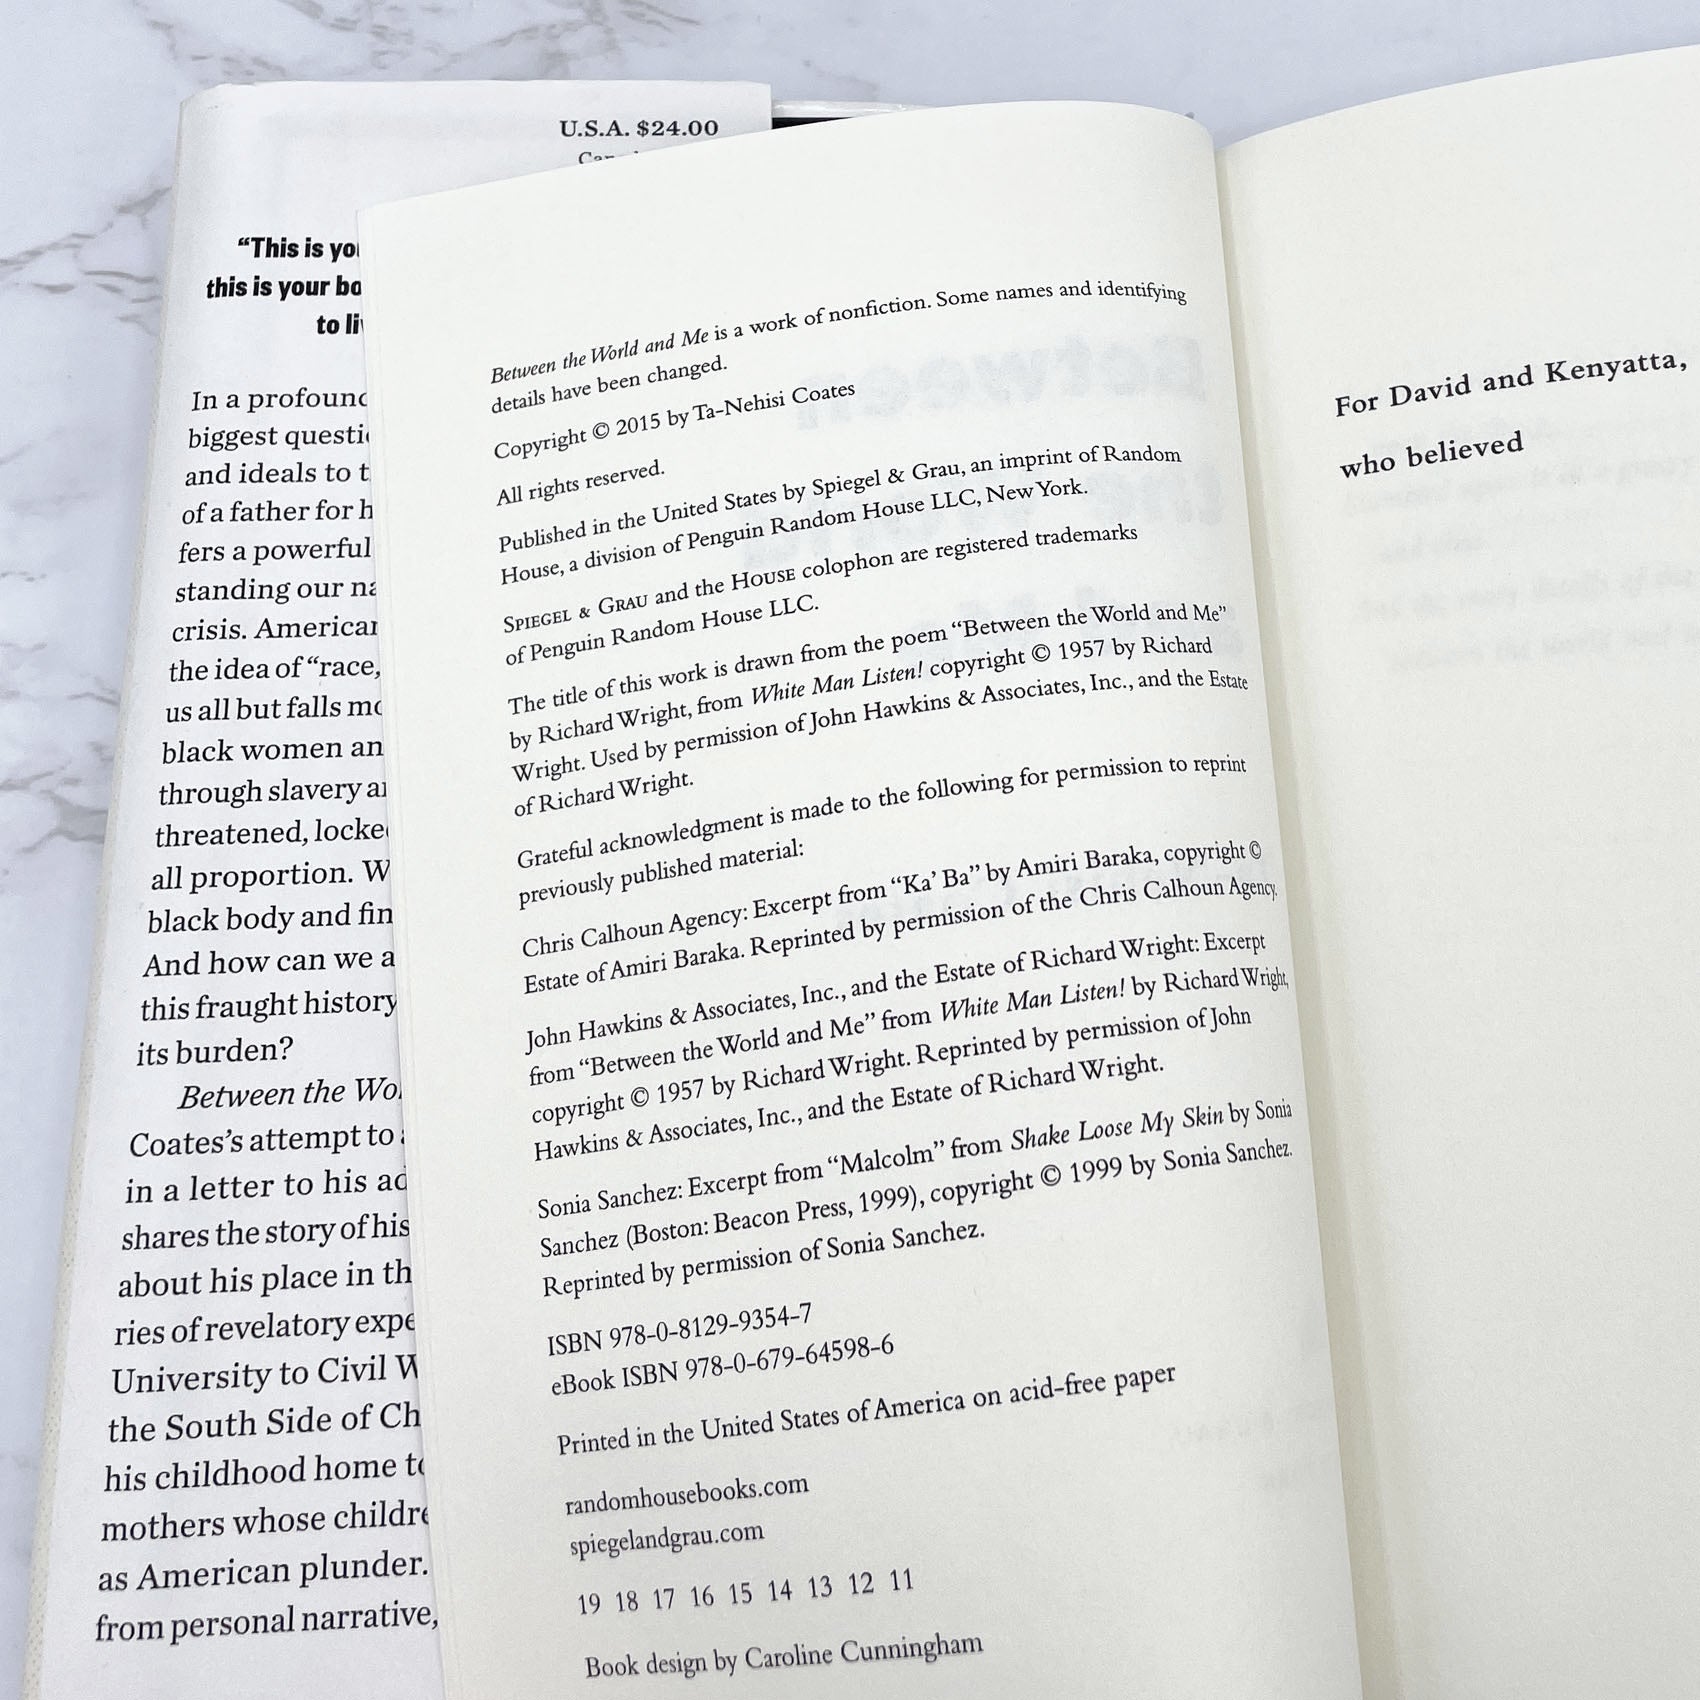 U.S.A. $24.00
“This is
this is your
to
In a
biggest
and ideals to
of a father for
fers a powerful
standing our
crisis.
the idea of “race,
us all but falls
black women
through slavery
threatened,
all proportion.
black body and
And how can we
this fraught history
its burden?
Between the
Coates’s attempt to
in a letter to his
shares the story of his
about his place in
ries of revelatory
University to Civil
the South Side of
his childhood home
mothers whose
as American plunder.
from personal narrative,
Between the World and Me is a work of nonfiction. Some names and identifying
details have been changed.
Copyright © 2015 by Ta-Nehisi Coates
All rights reserved.
Published in the United States by Spiegel & Grau, an imprint of Random
House, a division of Penguin Random House LLC, New York.
SPIEGEL & GRAU and the HOUSE colophon are registered trademarks
of Penguin Random House LLC.
The title of this work is drawn from the poem “Between the World and Me”
by Richard Wright, from White Man Listen! copyright © 1957 by Richard
Wright. Used by permission of John Hawkins & Associates, Inc., and the Estate
of Richard Wright.
Grateful acknowledgment is made to the following for permission to reprint
previously published material:
Chris Calhoun Agency: Excerpt from “Ka’ Ba” by Amiri Baraka, copyright ©
Estate of Amiri Baraka. Reprinted by permission of the Chris Calhoun Agency.
John Hawkins & Associates, Inc., and the Estate of Richard Wright: Excerpt
from “Between the World and Me” from White Man Listen! by Richard Wright,
copyright © 1957 by Richard Wright. Reprinted by permission of John
Hawkins & Associates, Inc., and the Estate of Richard Wright.
Sonia Sanchez: Excerpt from “Malcolm” from Shake Loose My Skin by Sonia
Sanchez (Boston: Beacon Press, 1999), copyright © 1999 by Sonia Sanchez.
Reprinted by permission of Sonia Sanchez.
ISBN 978-0-8129-9354-7
eBook ISBN 978-0-679-64598-6
Printed in the United States of America on acid-free paper
randomhousebooks.com
spiegelandgrau.com
19 18 17 16 15 14 13 12 11
Book design by Caroline Cunningham
For David and Kenyatta,
who believed